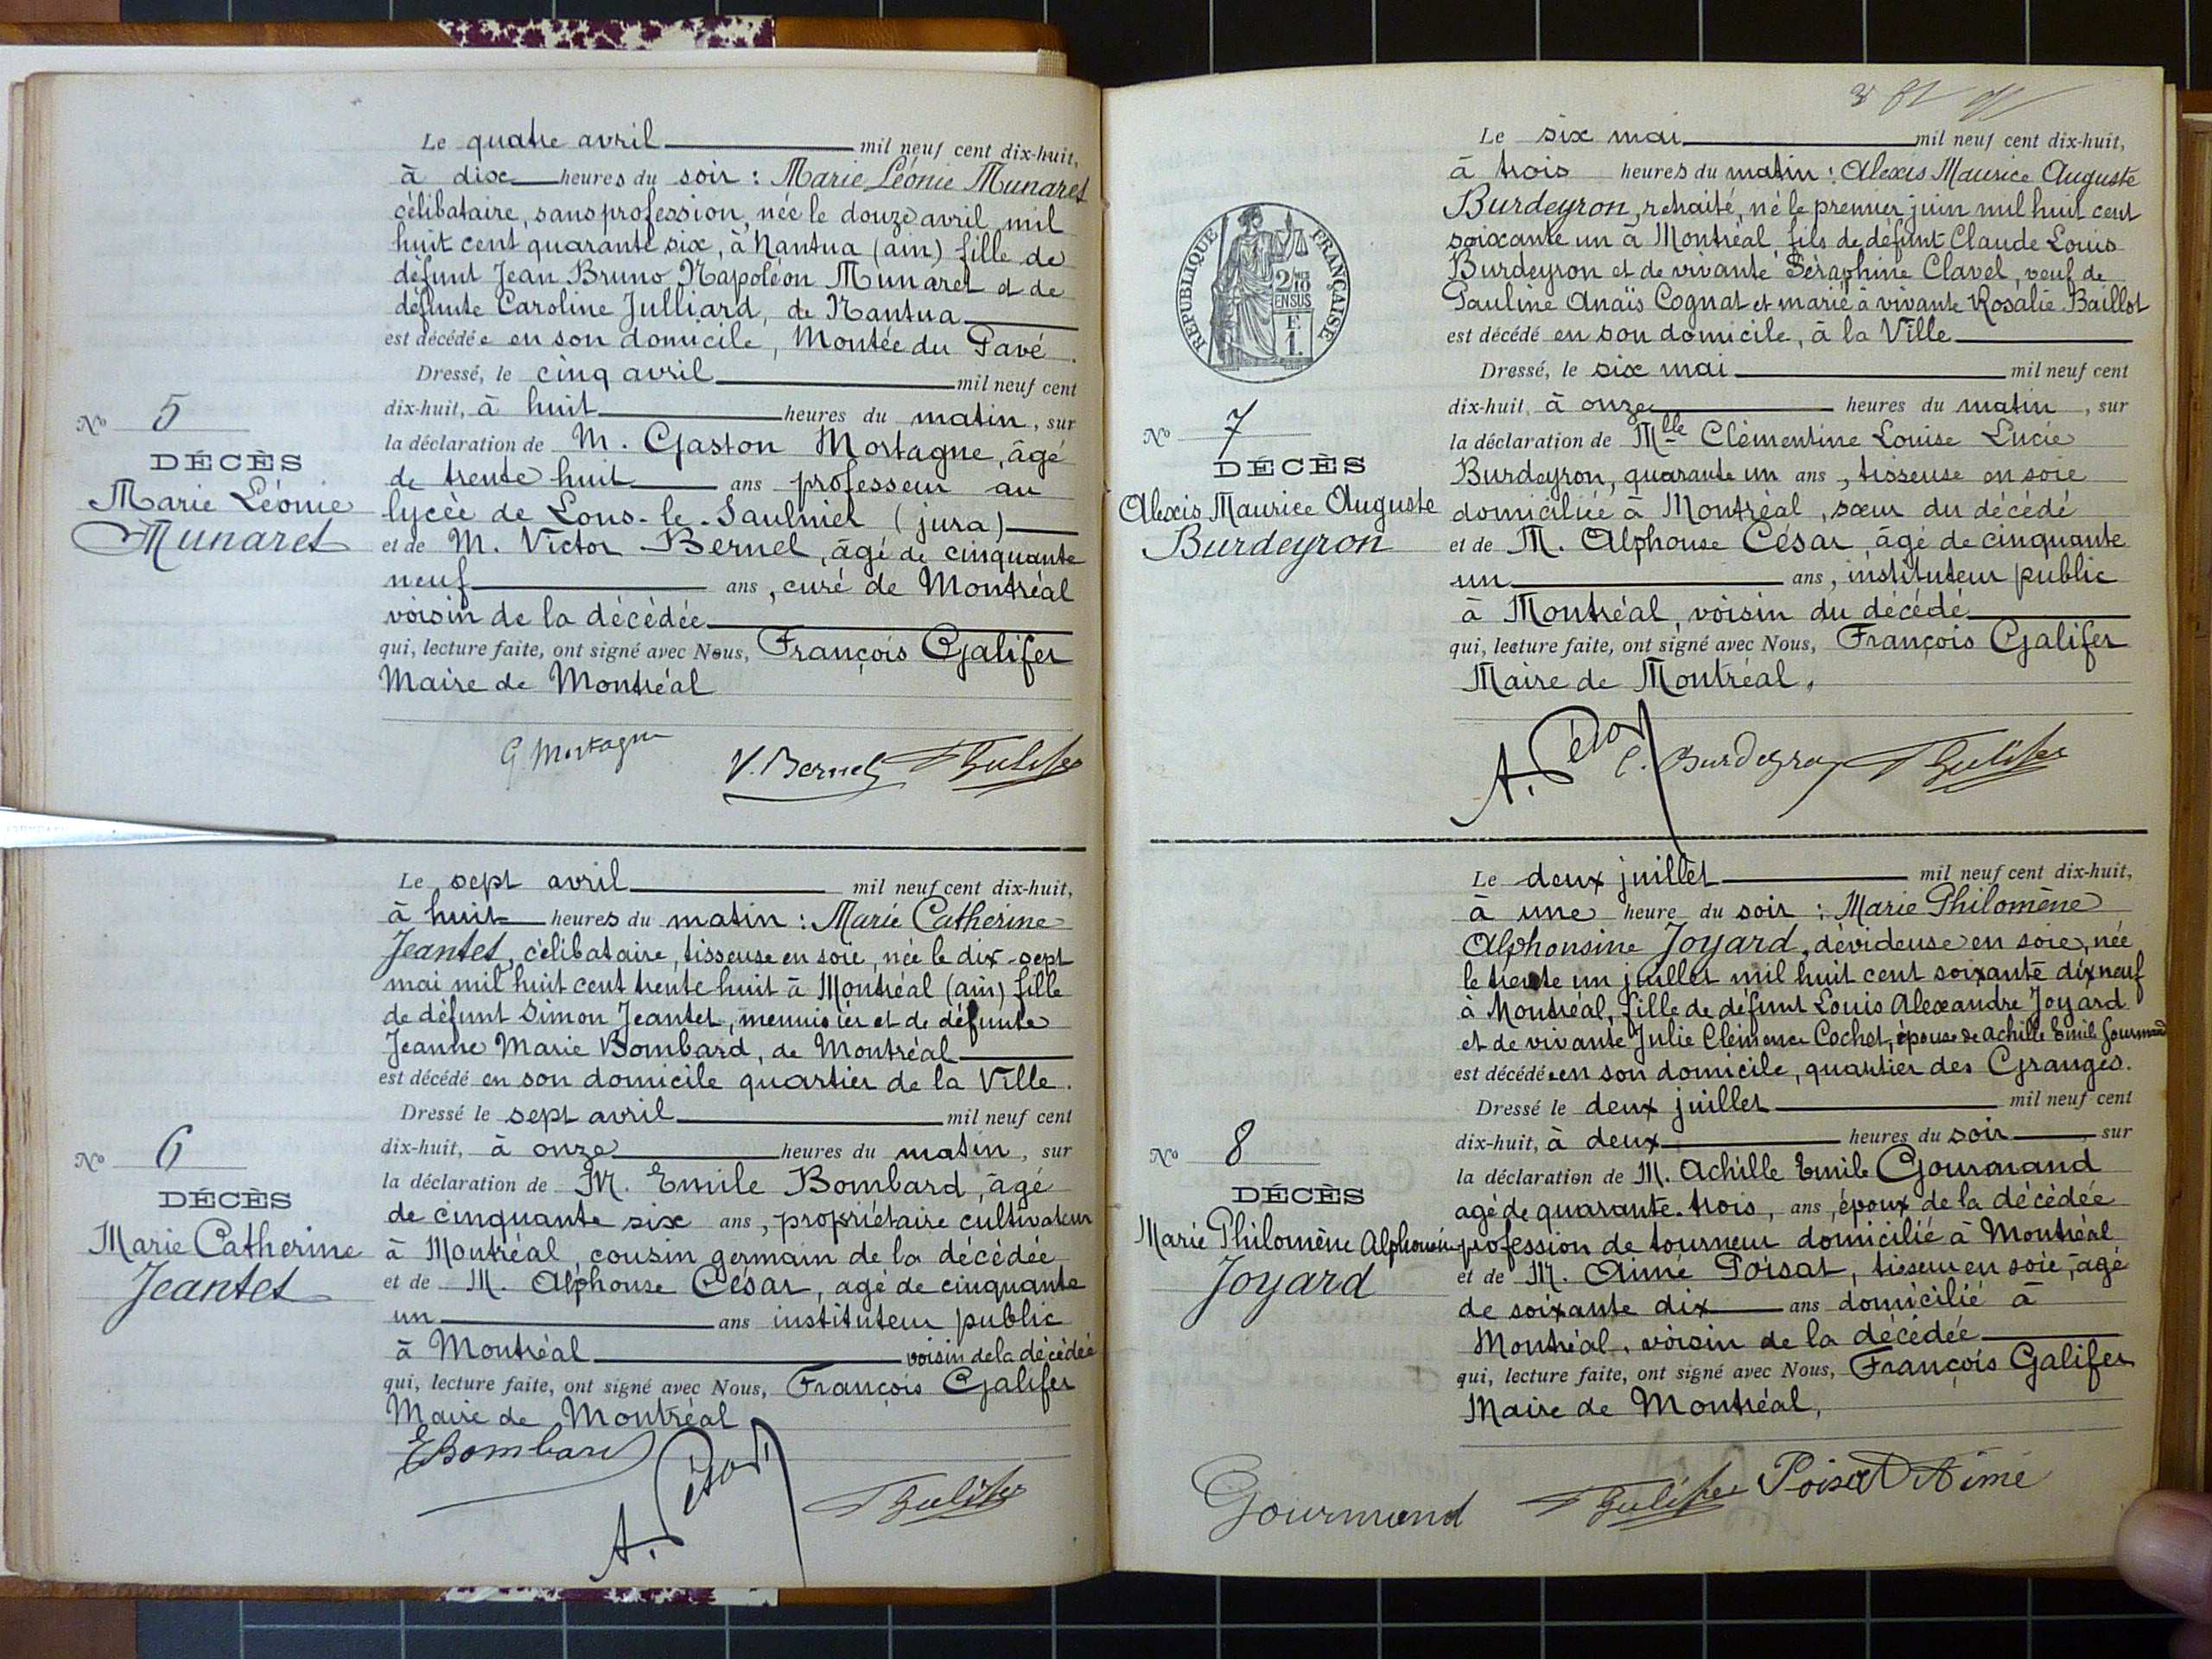 Le quatre avril mil neuf cent dix-huit,
à dix heures du soir : Marie Léonie Munaret
célibataire, sans profession, née le douze avril mil
huit cent quarante six, à Nantua (ain) fille de
défunt Jean Bruno Napoléon Munaret et de
défunte Caroline Julliard, de Nantua
est décédée en son domicile, Montée du Pavé.
Dressé, le cinq avril mil neuf cent
dix-huit, à huit heures du matin, sur
la déclaration de M. Gaston Mortagne, âgé
de trente huit ans professeur au
lycée de Lons-le-Saulnier (jura)
et de M. Victor Bernel, âgé de cinquante
neuf ans, curé de Montréal
voisin de la décédée
qui, lecture faite, ont signé avec Nous, François Galifer
Maire de Montréal
G. Mortagne V. Bernel
No 5
DÉCÈS
Marie Léonie
Munaret
Le sept avril mil neuf cent dix-huit,
à huit heures du matin : Marie Catherine
Jeantet, célibataire, tisseuse en soie, née le dix-sept
mai mil huit cent trente huit à Montréal (ain) fille
de défunt Simon Jeantet, menuisier et de défunte
Jeanne Marie Bombard, de Montréal
est décédé en son domicile quartier de la Ville.
Dressé le sept avril mil neuf cent
dix-huit, à onze heures du matin, sur
la déclaration de M. Emile Bombard, âgé
de cinquante six ans, propriétaire cultivateur
à Montréal, cousin germain de la décédée
et de M. Alphonse César, agé de cinquante
un ans instituteur public
à Montréal voisin de la décédée
qui, lecture faite, ont signé avec Nous, François Galifer
Maire de Montréal
EBombard
A. César
No 6
DÉCÈS
Marie Catherine
Jeantet
Le six mai mil neuf cent dix-huit,
à trois heures du matin : Alexis Maurice Auguste
Burdeyron, retraité, né le premier juin mil huit cent
soixante un à Montréal fils de défunt Claude Louis
Burdeyron et de vivante Séraphine Clavel, veuf de
Pauline Anaïs Cognat et marié à vivante Rosalie Baillot
est décédé en son domicile, à la Ville
Dressé, le six mai mil neuf cent
dix-huit, à onze heures du matin, sur
la déclaration de Mlle Clémentine Louise Lucie
Burdeyron, quarante un ans, tisseuse en soie
domiciliée à Montréal, sœur du décédé
et de M. Alphonse César, âgé de cinquante
un ans, instituteur public
à Montréal, voisin du décédé
qui, lecture faite, ont signé avec Nous, François Galifer
Maire de Montréal.
A. César C. Burdeyron
RÉPUBLIQUE FRANÇAISE
2/10
EN SUS
F.
1.
No 7
DÉCÈS
Alexis Maurice Auguste
Burdeyron
Le deux juillet mil neuf cent dix-huit,
à une heure du soir : Marie Philomène
Alphonsine Joyard, dévideuse en soie, née
le trente un juillet mil huit cent soixante dix neuf
à Montréal, fille de défunt Louis Alexandre Joyard
et de vivante Julie Clémence Cochet, épouse de Achille Emile Gourmand
est décédée en son domicile, quartier des Granges.
Dressé le deux juillet mil neuf cent
dix-huit, à deux heures du soir, sur
la déclaration de M. Achille Emile Gourmand
agé de quarante-trois, ans, époux de la décédée
profession de tourneur domicilié à Montréal
et de M. Aimé Poisat, tisseur en soie, âgé
de soixante dix ans domicilié à
Montréal, voisin de la décédée
qui, lecture faite, ont signé avec Nous, François Galifer
Maire de Montréal,
Gourmand Poisat Aimé
No 8
DÉCÈS
Marie Philomène Alphonsine
Joyard